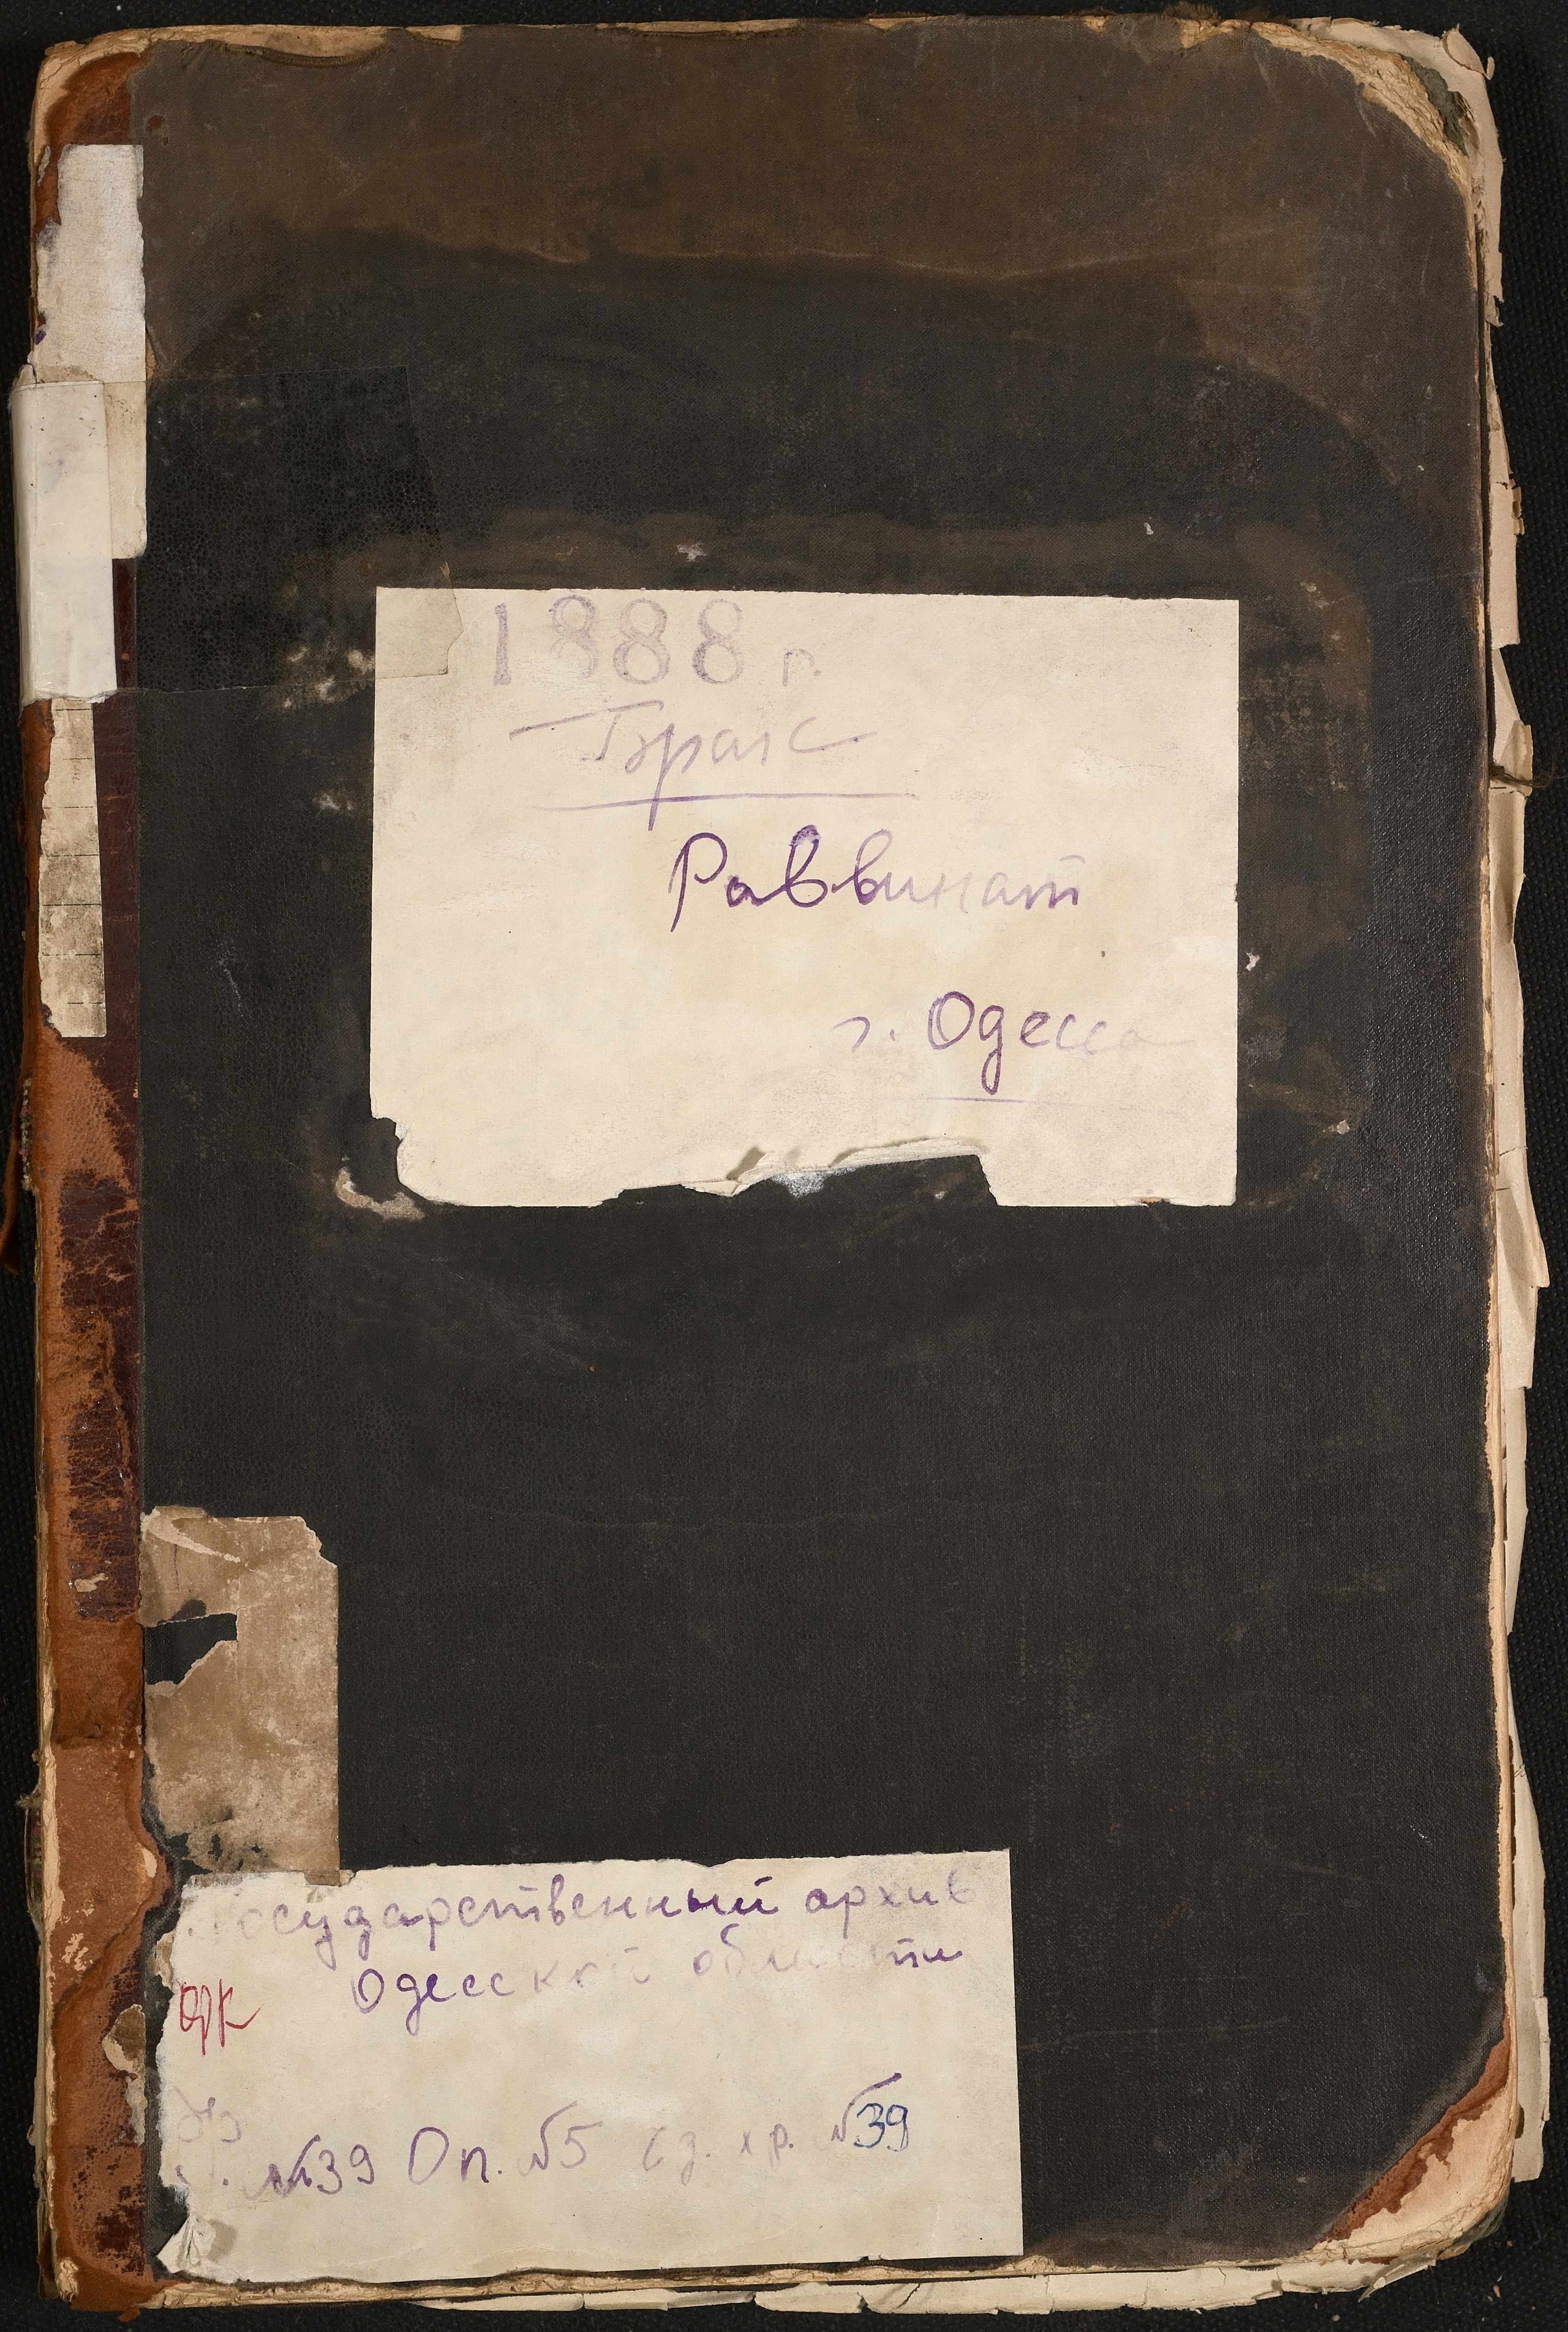 1888 г.
Брак
Раввинат
г. Одесса
Государственный архив
Одесской области
ОРК
№39 Оп. №5 Ед. хр. №39